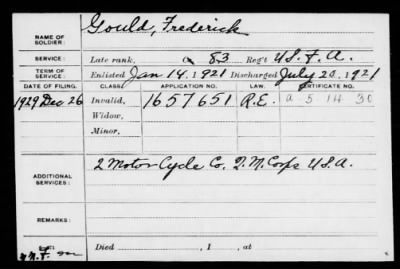 NAME OF SOLDIER: Gould, Frederick
SERVICE: Late rank, 83 Reg't U.S.F.A.
TERM OF SERVICE: Enlisted Jan 14, 1921 Discharged July 20, 1921
DATE OF FILING. CLASS. APPLICATION NO. LAW. CERTIFICATE NO.
1929 Dec 26 Invalid, 1657651 R.E. a 5 14 30
Widow,
Minor,
ADDITIONAL SERVICES: 2 Motor Cycle Co. Q.M. Corps U.S.A.
REMARKS:
Died , 1 , at